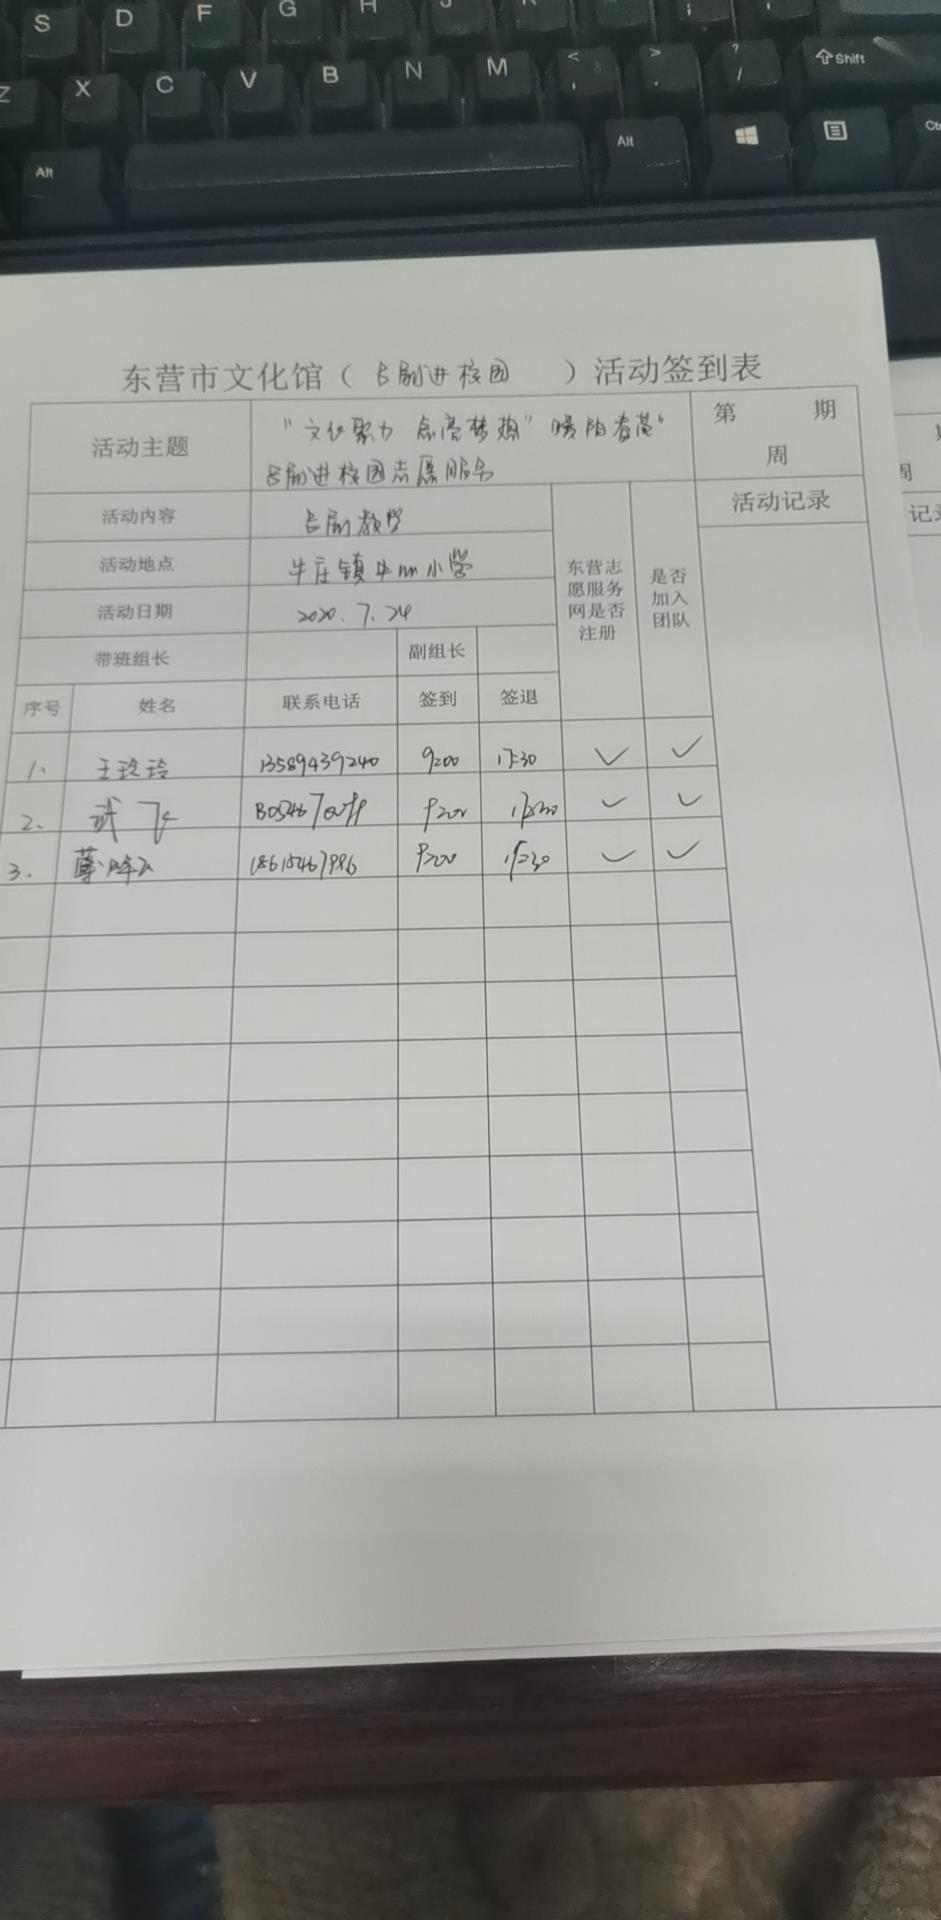 S D F G H J K ;
Z X C V B N M < > ? / Shift
Alt Alt Ctrl
东营市文化馆（吕剧进校园）活动签到表
活动主题
"文化聚力 点亮梦想"暖阳春蕾"
吕剧进校园志愿服务
第 期
周
活动内容 吕剧教学
活动记录
活动地点 牛庄镇中心小学
活动日期 2020.7.24
东营志愿服务网是否注册
是否加入团队
带班组长 副组长
序号 姓名 联系电话 签到 签退
1. 王玲玲 13589439240 9:00 17:30 ✓ ✓
2. 武飞 9:00 17:30 ✓ ✓
3. 18615467986 9:00 17:30 ✓ ✓